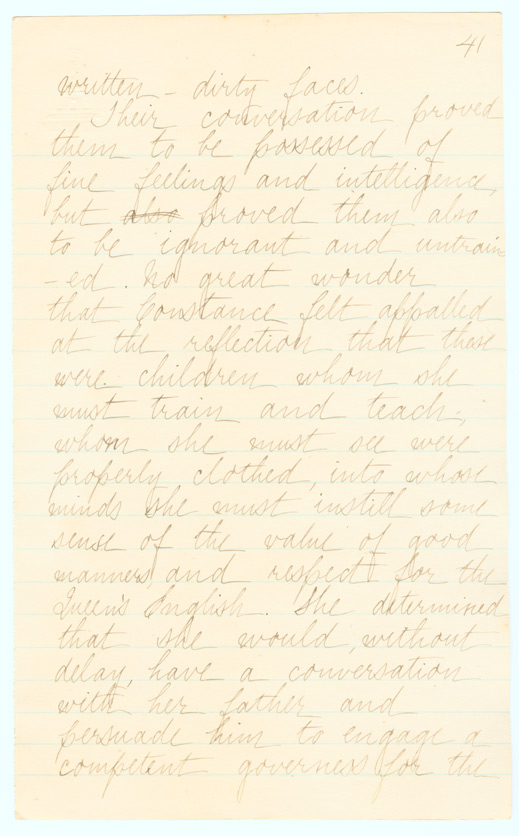 41
written - dirty faces.
Their conversation proved
them to be possessed of
fine feelings and intelligence,
but also proved them also
to be ignorant and untrain
-ed. No great wonder
that Constance felt appalled
at the reflection that these
were children whom she
must train and teach;
whom she must see were
properly clothed, into whose
minds she must instill some
sense of the value of good
manners and respect for the
Queen's English. She determined
that she would, without
delay, have a conversation
with her father and
persuade him to engage a
competent governess for the